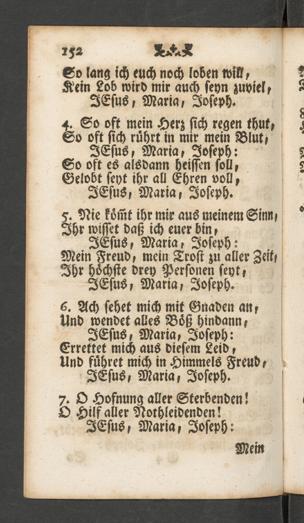 152
So lang ich euch noch loben will,
Kein Lob wird mir auch seyn zuviel,
JEsus, Maria, Joseph.
4. So oft mein Herz sich regen thut,
So oft sich rührt in mir mein Blut,
JEsus, Maria, Joseph:
So oft es alsdann heissen soll,
Gelobt seyt ihr all Ehren voll,
JEsus, Maria, Joseph.
5. Nie kömt ihr mir aus meinem Sinn,
Ihr wisset daß ich euer bin,
JEsus, Maria, Joseph:
Mein Freud, mein Trost zu aller Zeit,
Ihr höchste drey Personen seyt,
JEsus, Maria, Joseph.
6. Ach sehet mich mit Gnaden an,
Und wendet alles Böß hindann,
JEsus, Maria, Joseph:
Errettet mich aus diesem Leid,
Und führet mich in Himmels Freud,
JEsus, Maria, Joseph.
7. O Hofnung aller Sterbenden!
O Hilf aller Nothleidenden!
JEsus, Maria, Joseph:
Mein